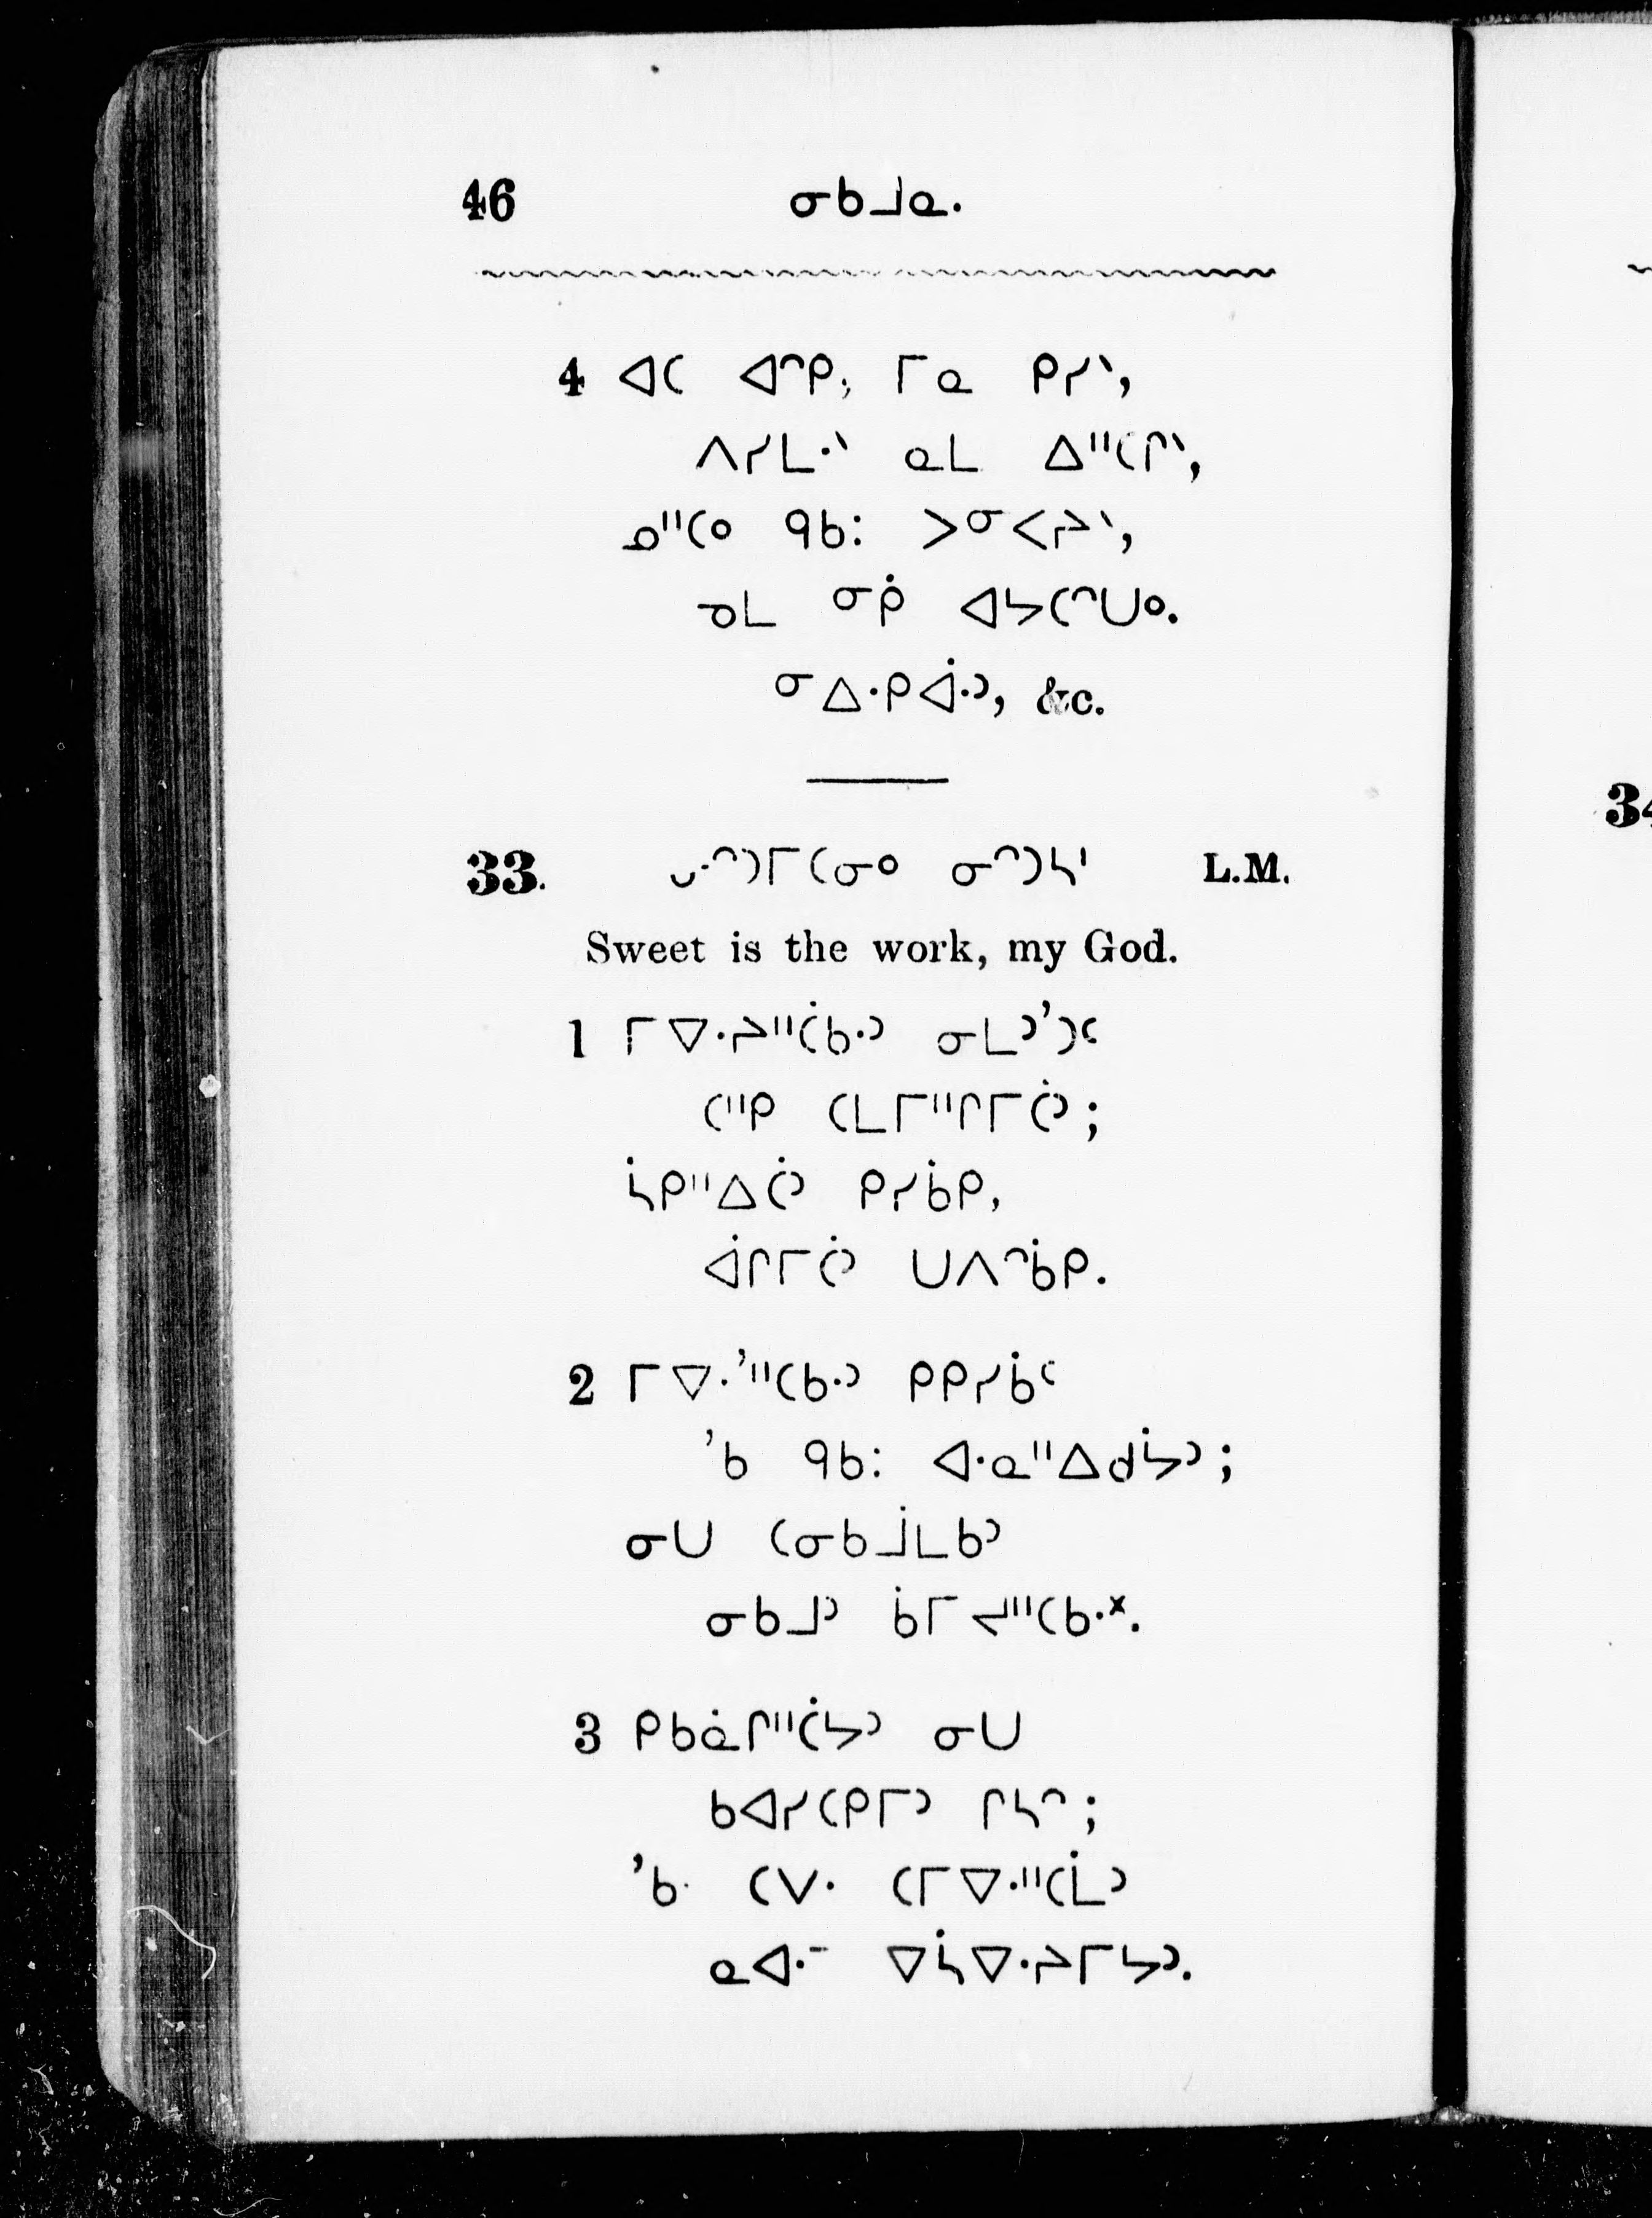 46 ᓂᑲᒧᓇ.
4 ᐊᑕ ᐊᐢᑭ, ᒥᓇ ᑭᓯᐠ,
ᐱᓯᒪᐧᐠ ᓇᒪ ᐃᐦᑕᒋᐠ,
ᓄᐦᑕᐤ ᑫᑲ: ᐳᓂᐸᔨᐠ,
ᓀᒪ ᓂᑮ ᐊᔭᑕᐢᑌᐤ.
ᓂᐃᐧᑭᐋᐧᐣ, &c.
33. ᓀᐧᐢᑐᒥᑕᓂᐤ ᓂᐢᑐᓴᑊ L.M.
Sweet is the work, my God.
1 ᒥᐁᐧᔨᐦᑖᑲᐧᐣ ᓂᒪᐣ’ᑐᒼ
ᑕᐦᑭ ᑕᒪᒥᐦᒋᒥᑖᐣ;
ᓵᑭᐦᐃᑖᐣ ᑭᓯᑳᑭ,
ᐋᒋᒥᑖᐣ ᑌᐱᐢᑳᑭ.
2 ᒥᐁᐧ’ᐦᑕᑲᐧᐣ ᑭᑭᓯᑳᒼ
’ᑲ ᑫᑲ: ᐊᐧᓇᐦᐃᑯᔮᐣ;
ᓂᑌ ᑕᓂᑲᒨᒪᑲᐣ
ᓂᑲᒧᐣ ᑳᒥᔪᐦᑕᑲᐧᕽ.
3 ᑭᑲᓈᒋᐦᑖᔭᐣ ᓂᑌ
ᑲᐊᓯᑕᑭᒥᐣ ᒋᓴᐢ;
’ᑲ ᑕᐯᐧ ᑕᒥᐁᐧᐦᑖᒫᐣ
ᓇᐊᐧᐨ ᐁᓵᐁᐧᔨᒥᔭᐣ.
34